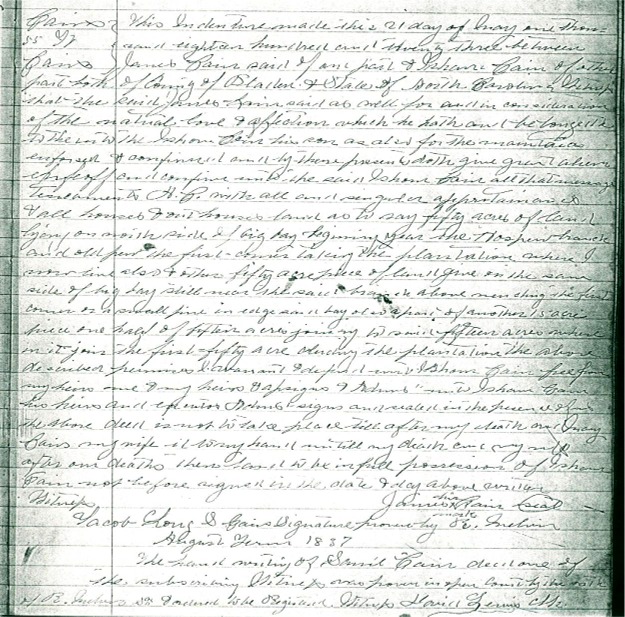 Cain This Indenture made this 21 day of May one thou-
55 To and eighteen hundred and twenty three between
Cain James Cain said of one part & Isham Cain of other
part both of County of Bladen & State of North Carolina Witness
that the said James Cain said as well for and in consideration
of the natural love & affection which he hath and
to the Isham Cain his son as also for the maintaines
& confirmed and by these presents doth give grant alien
and confirm unto the said Isham Cain all that
Tenements A. C. with all and singular appurtainances
& all houses & out houses land as to say fifty acres of land
lying on north side of big bay begining near the branch
and old the first corner taking the plantation where I
now live also other fifty acre piece of land give on the same
side of big bay still near the said branch above the first
corner is a small pine in edge said bay also a part of another 15 acre
piece one half of fifteen acres joining to said fifteen acres where
in it join the first fifty acre the plantation the above
described premises I warrant & defend unto Isham Cain free from
my heirs me & my heirs & assigns & unto Isham Cain
his heirs and signs and sealed in the presence of us
the above deed is not to take place till after my death and Mary
Cain my wife it to my hand untill my death and my wife
after our deaths then land to be in full possession of Isham
Cain not before signed in the date & day above written
Witness James his mark Cain Seal
Jacob Long S Cain's Signature proven by
August Term 1837
The hand writing of Saml Cain decd one of
the subscribing Witness was proven in open Court by the oath
of & ordered to be Registered. Witness David Lewis Clk